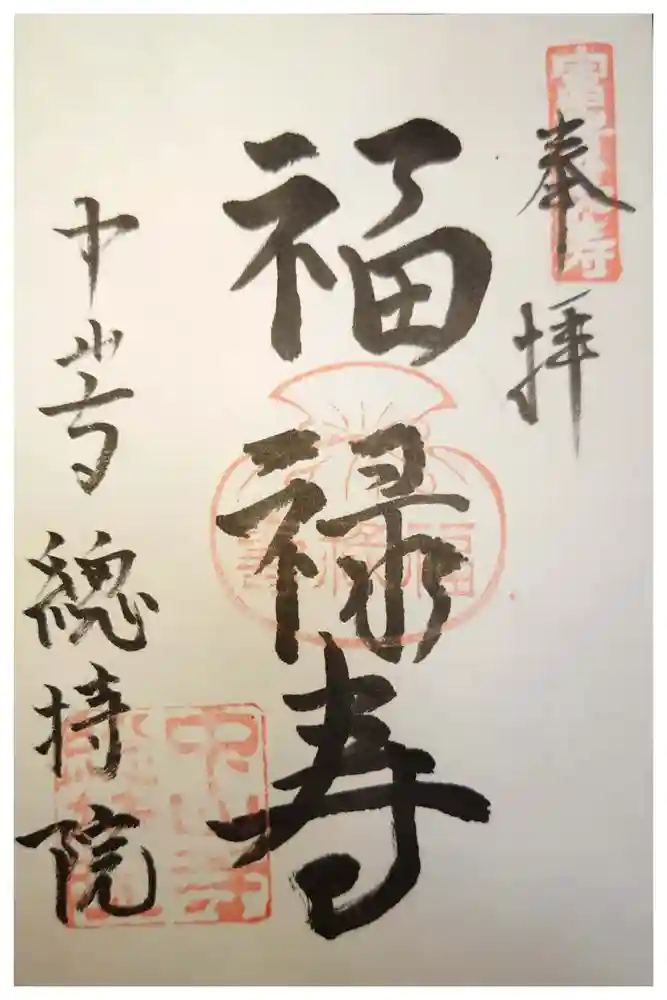 奉拝
福禄寿
中山寺 總持院
福禄寿
中山寺